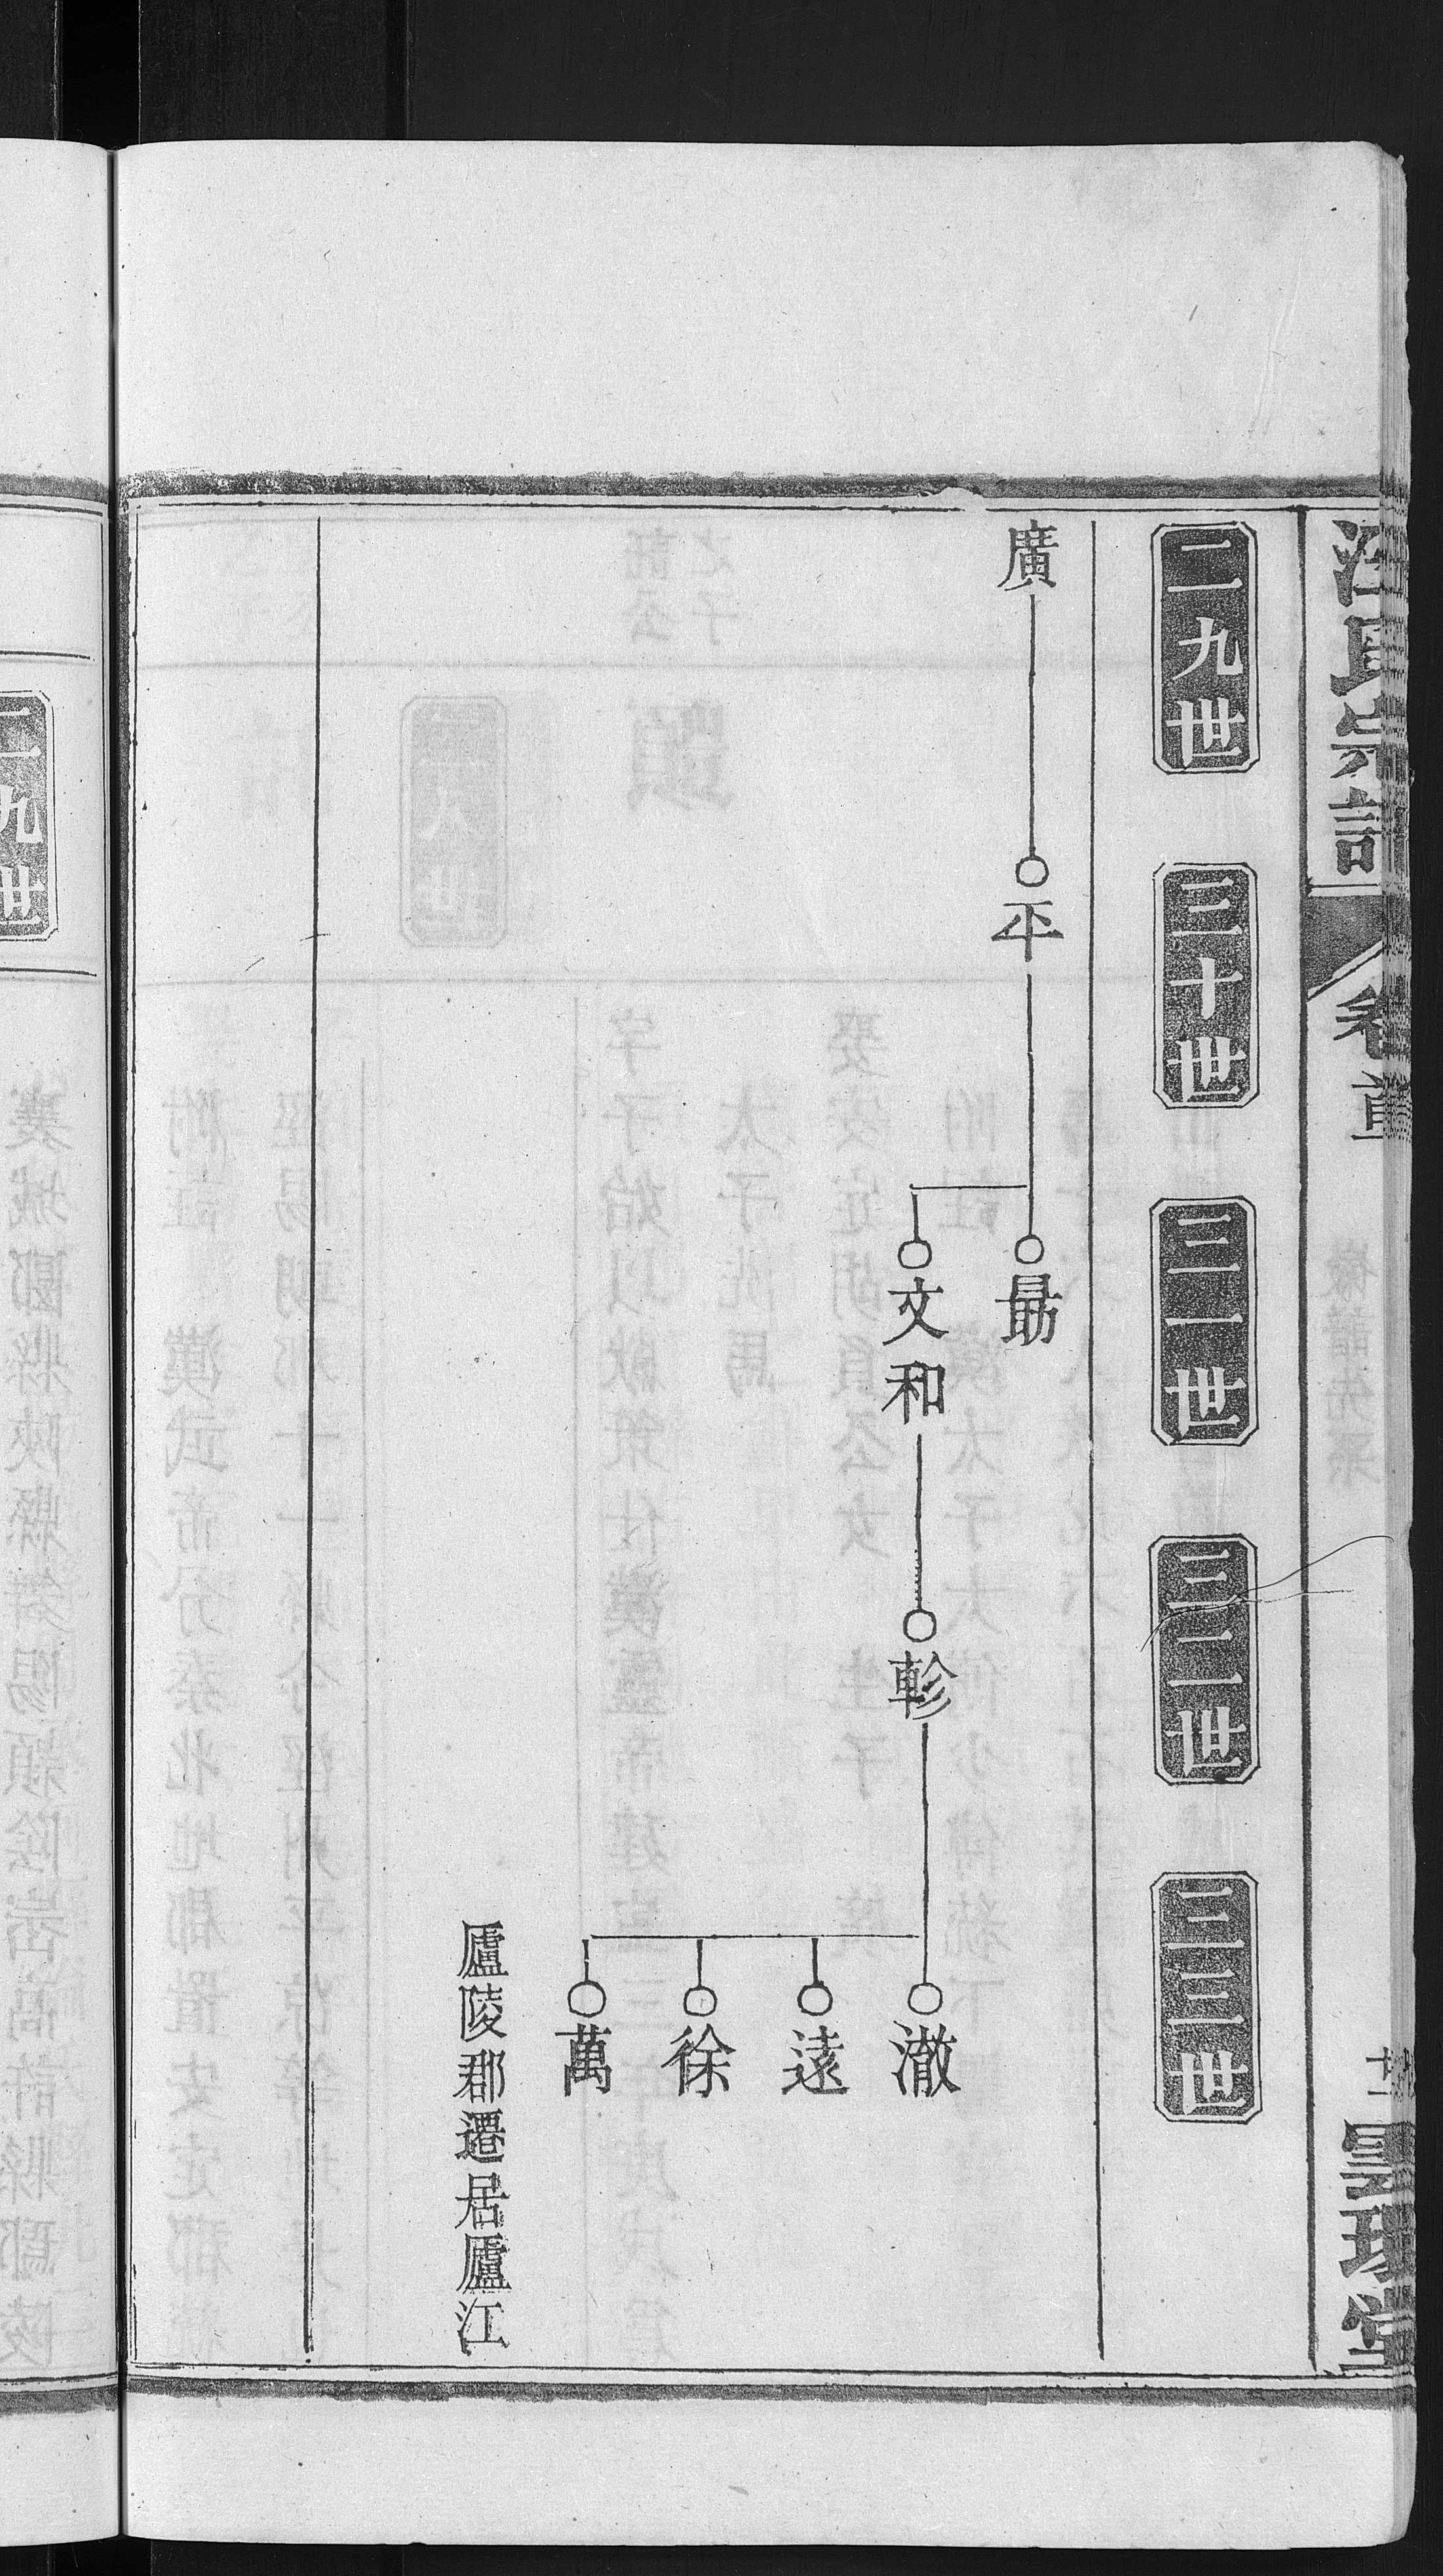 氏宗譜
卷首
堂
二九世
三十世
三一世
三二世
三三世
廣
平
勗
文和
軫
澈
遠
徐
萬
廬陵郡遷居廬江
二九世